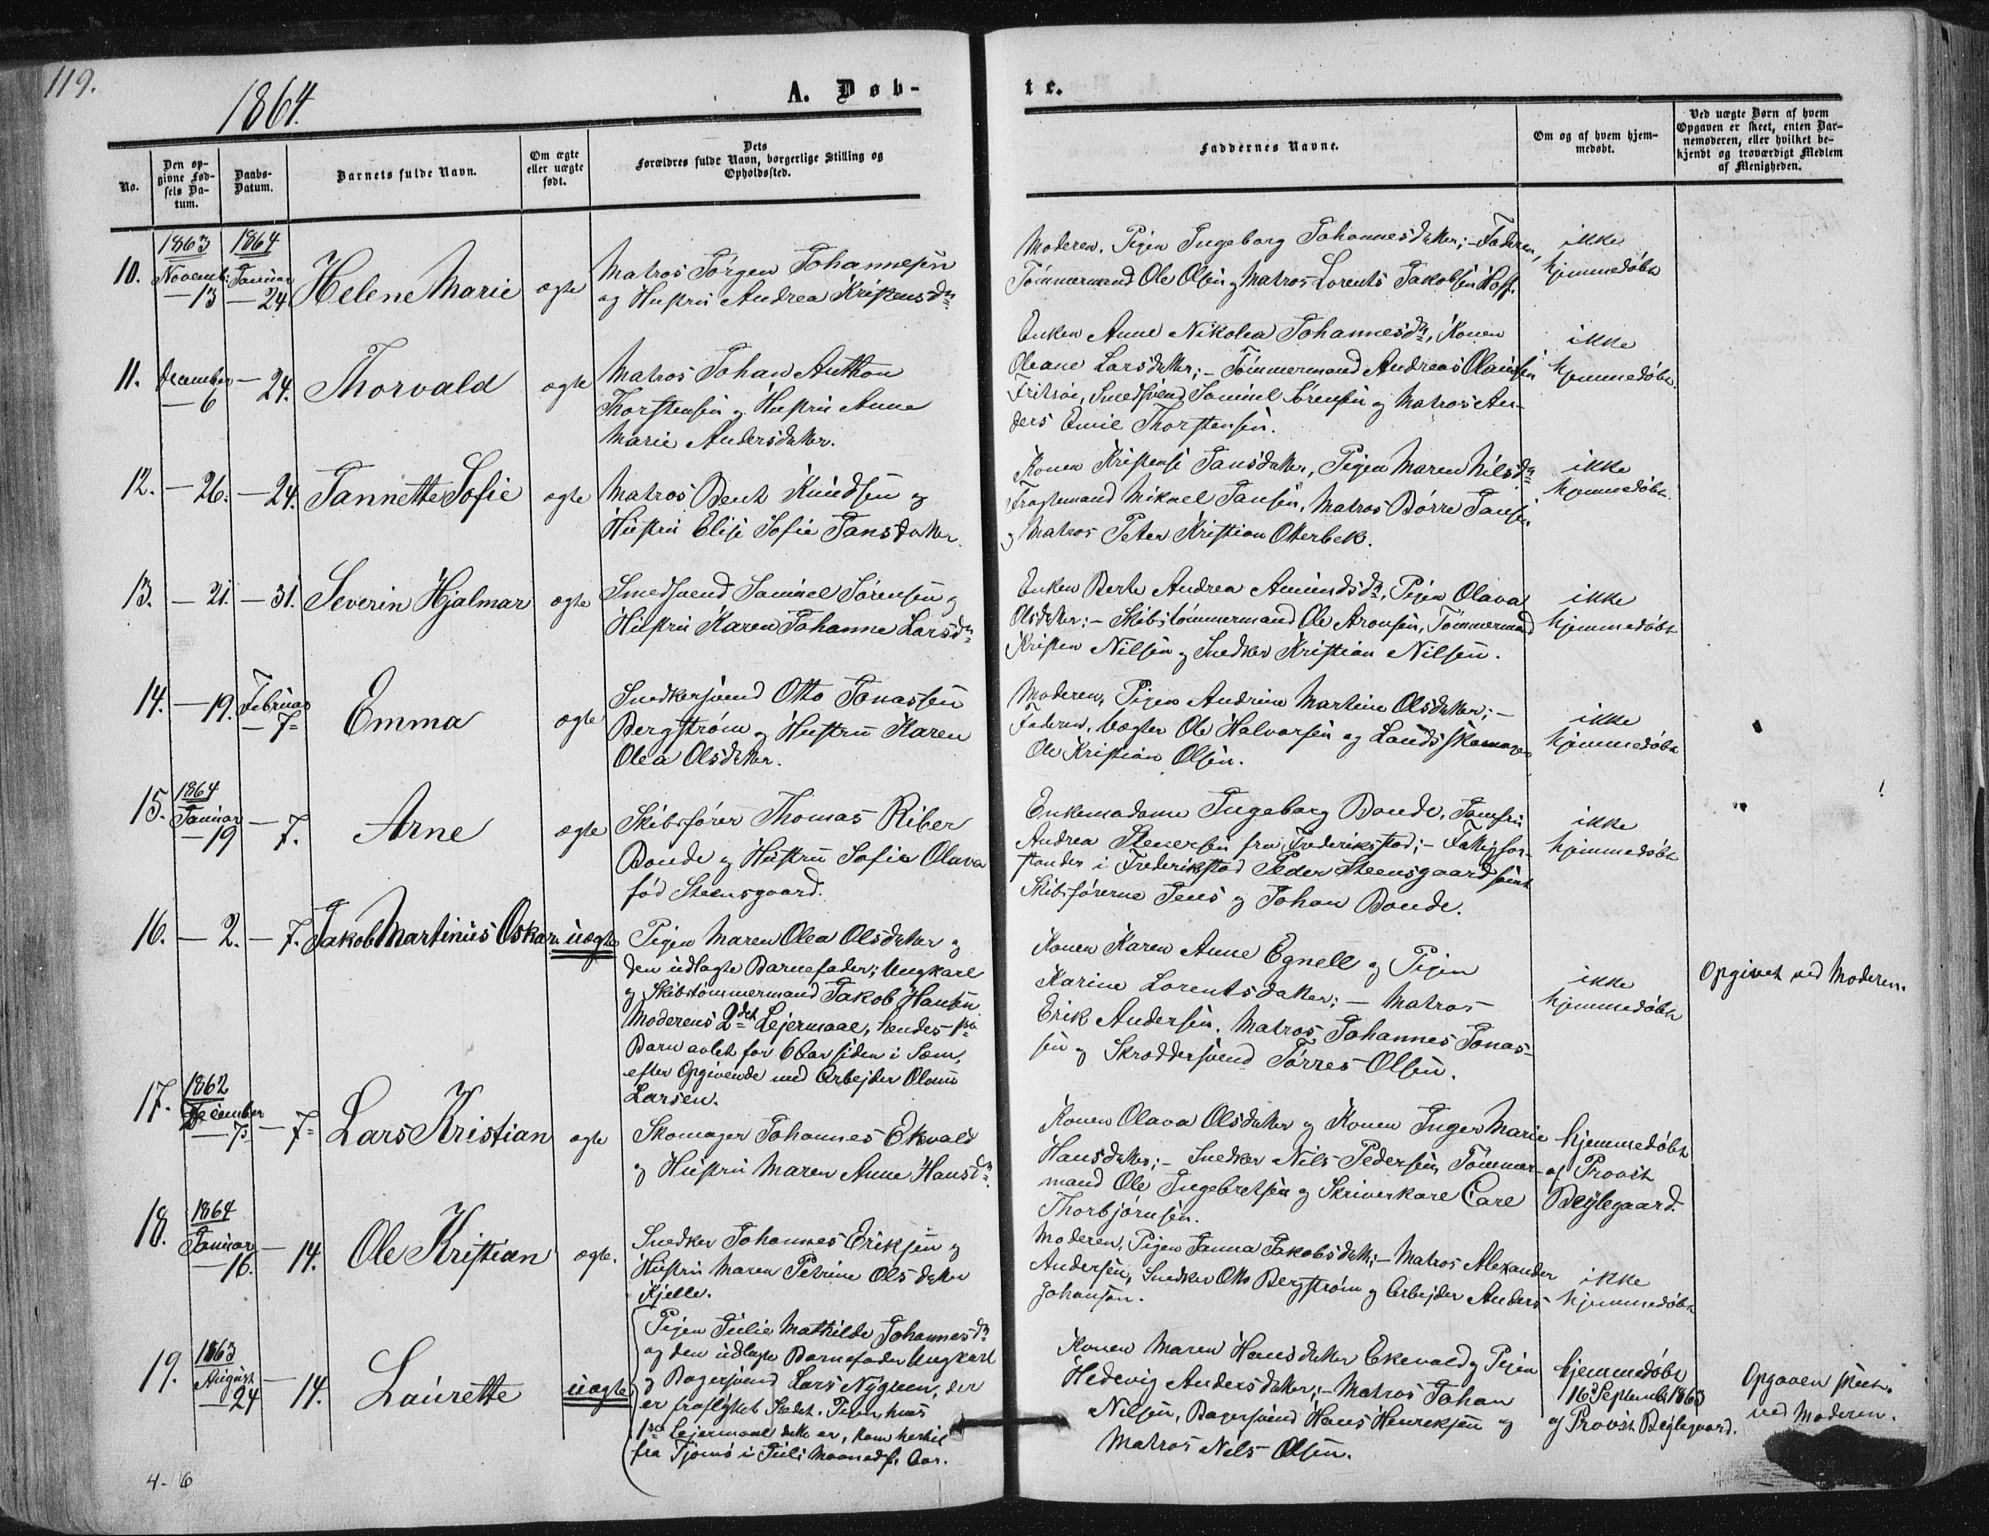 119.
1864.
A. Døb-
te.
No.
Den op-
givne Fød-
sels Da-
tum.
Daabs-
Datum.
Barnets fulde Navn.
Om ægte
eller uægte
født.
Dets
Forældres fulde Navn, borgerlige Stilling og
Opholdssted.
Faddernes Navne.
Om og af hvem hjem-
medøbt.
Ved uægte Børn af hvem
Opgaven er skeet, enten Bar-
nemoderen, eller hvilket be-
kjendt og troværdigt Medlem
af Menigheden.
10.
1863
Novemb.
— 13
1864
Januar
— 24.
Helene Marie
ægte
Matros Jørgen Johannesen
og Hustru Andrea Kristensdr
Moderen, Pigen Ingeborg Johannesdatter; — Faderen,
Tømmermand Ole Olsen og Matros Lorents Jakobsen Hoff.
ikke
hjemmedøbt
11.
December
— 6
— 24.
Thorvald
ægte
Matros Johan Anthon
Thorstensen og Hustru Anne
Marie Andersdatter.
Enken Anne Nikolea Johannesdr, Konen
Oleane Larsdatter; — Tømmermand Andreas Olausen
Fritsøe, Smedsvend Samuel Sørensen og Matros An-
ders Emil Thorstensen.
ikke
hjemmedøbt.
12.
— 26.
— 24.
Jannette Sofie
ægte
Matros Bent Knudsen og
Hustru Elise Sofie Jansdatter.
Konen Kristense Jansdatter, Pigen Maren Nilsdr
Fragtemand Mikael Jansen, Matros Børre Jansen
og Matros Peter Kristian Otterbek.
ikke
hjemmedøbt.
13.
— 21.
— 31.
Severin Hjalmar
ægte
Smedsvend Samuel Sørensen og
Hustru Karen Johanne Larsdr
Enken Berte Andrea Amundsdr, Pigen Olava
Olsdatter; — Skibstømmermand Ole Aronsen, Tømmermand
Kristen Nilsen og Snedker Kristian Nilsen.
ikke
hjemmedøbt
14.
— 19.
Februar
— 7=
Emma
ægte
Snedkersvend Otto Jonassen
Bergstrøm og Hustru Karen
Olea Olsdatter.
Moderen, Pigen Andrine Martine Olsdatter; —
Faderen, Vægter Ole Halvorsen og Landsskomager
Ole Kristian Olsen.
ikke
hjemmedøbt
15.
1864
Januar
— 19
— 7.
Arne
ægte
Skibsfører Thomas Riber
Bonde og Hustru Sofie Olava
fød Steensgaard.
Enkemadame Ingeborg Bonde, Jomfru
Andrea Stenersen fra Frederikstad; — Fattigfor-
stander i Frederikstad Peder Steensgaard samt
Skibsførerne Jens og Johan Bonde.
ikke
hjemmedøbt
16.
— 2.
— 7.
Jakob Martinus Oskar.
uægte
Pigen Maren Olea Olsdatter og
den udlagte Barnefader; Ungkarl
og Skibstømmermand Jakob Hansen
Moderens 2det Lejermaal, hendes 1ste
Barn avlet for 6 Aar siden i Sem,
efter Opgivende med Arbejder Olaus
Larsen.
Konen Karen Anne Egnell og Pigen
Karine Lorentsdatter; — Matros
Erik Andersen, Matros Johannes Jonas-
sen og Skroddersvend Tørres Olsen.
ikke
hjemmedøbt
Opgivet ved Moderen.
17.
1862
December
— 7=
— 7=
Lars Kristian
ægte
Skomager Johannes Ekvald
og Hustru Maren Anne Hansdr.
Konen Olava Olsdatter og Konen Inger Marie
Hansdatter; — Snedker Nils Pedersen, Tømmer-
mand Ole Ingebretsen og Skriverkarl Carl
Thorbjørnsen.
hjemmedøbt
af Provst
Bejlegaard.
18.
1864
Januar
— 16.
— 14.
Ole Kristian
ægte.
Snedker Johannes Eriksen og
Hustru Maren Petrine Olsdatter
Kjelle.
Moderen, Pigen Janna Jakobsdatt; — Matros Alexander
Andersen, Snedker Otto Bergstrøm og Arbejder Anders
Johansen.
ikke
hjemmedøbt
19.
1863
August
— 24
— 14.
Laurette
uægte
Pigen Julie Mathilde Johannesdr
og den udlagte Barnefader Ungkarl
og Bagersvend Lars Nygreen, der
er fraflyttet Stedet. Pigen, hvis
1ste Lejermaal dette er, kom hertil
fra Tjømø i Juli Maaned f. Aar.
Konen Maren Hansdatter Ekevald og Pigen
Hedevig Andersdatter; — Matros Johan
Nilsen, Bagersvend Hans Henriksen og
Matros Nils Olsen.
hjemmedøbt
16d September 1863
af Provst Bejlegaard.
Opgaven skeet
ved Moderen.
4-6